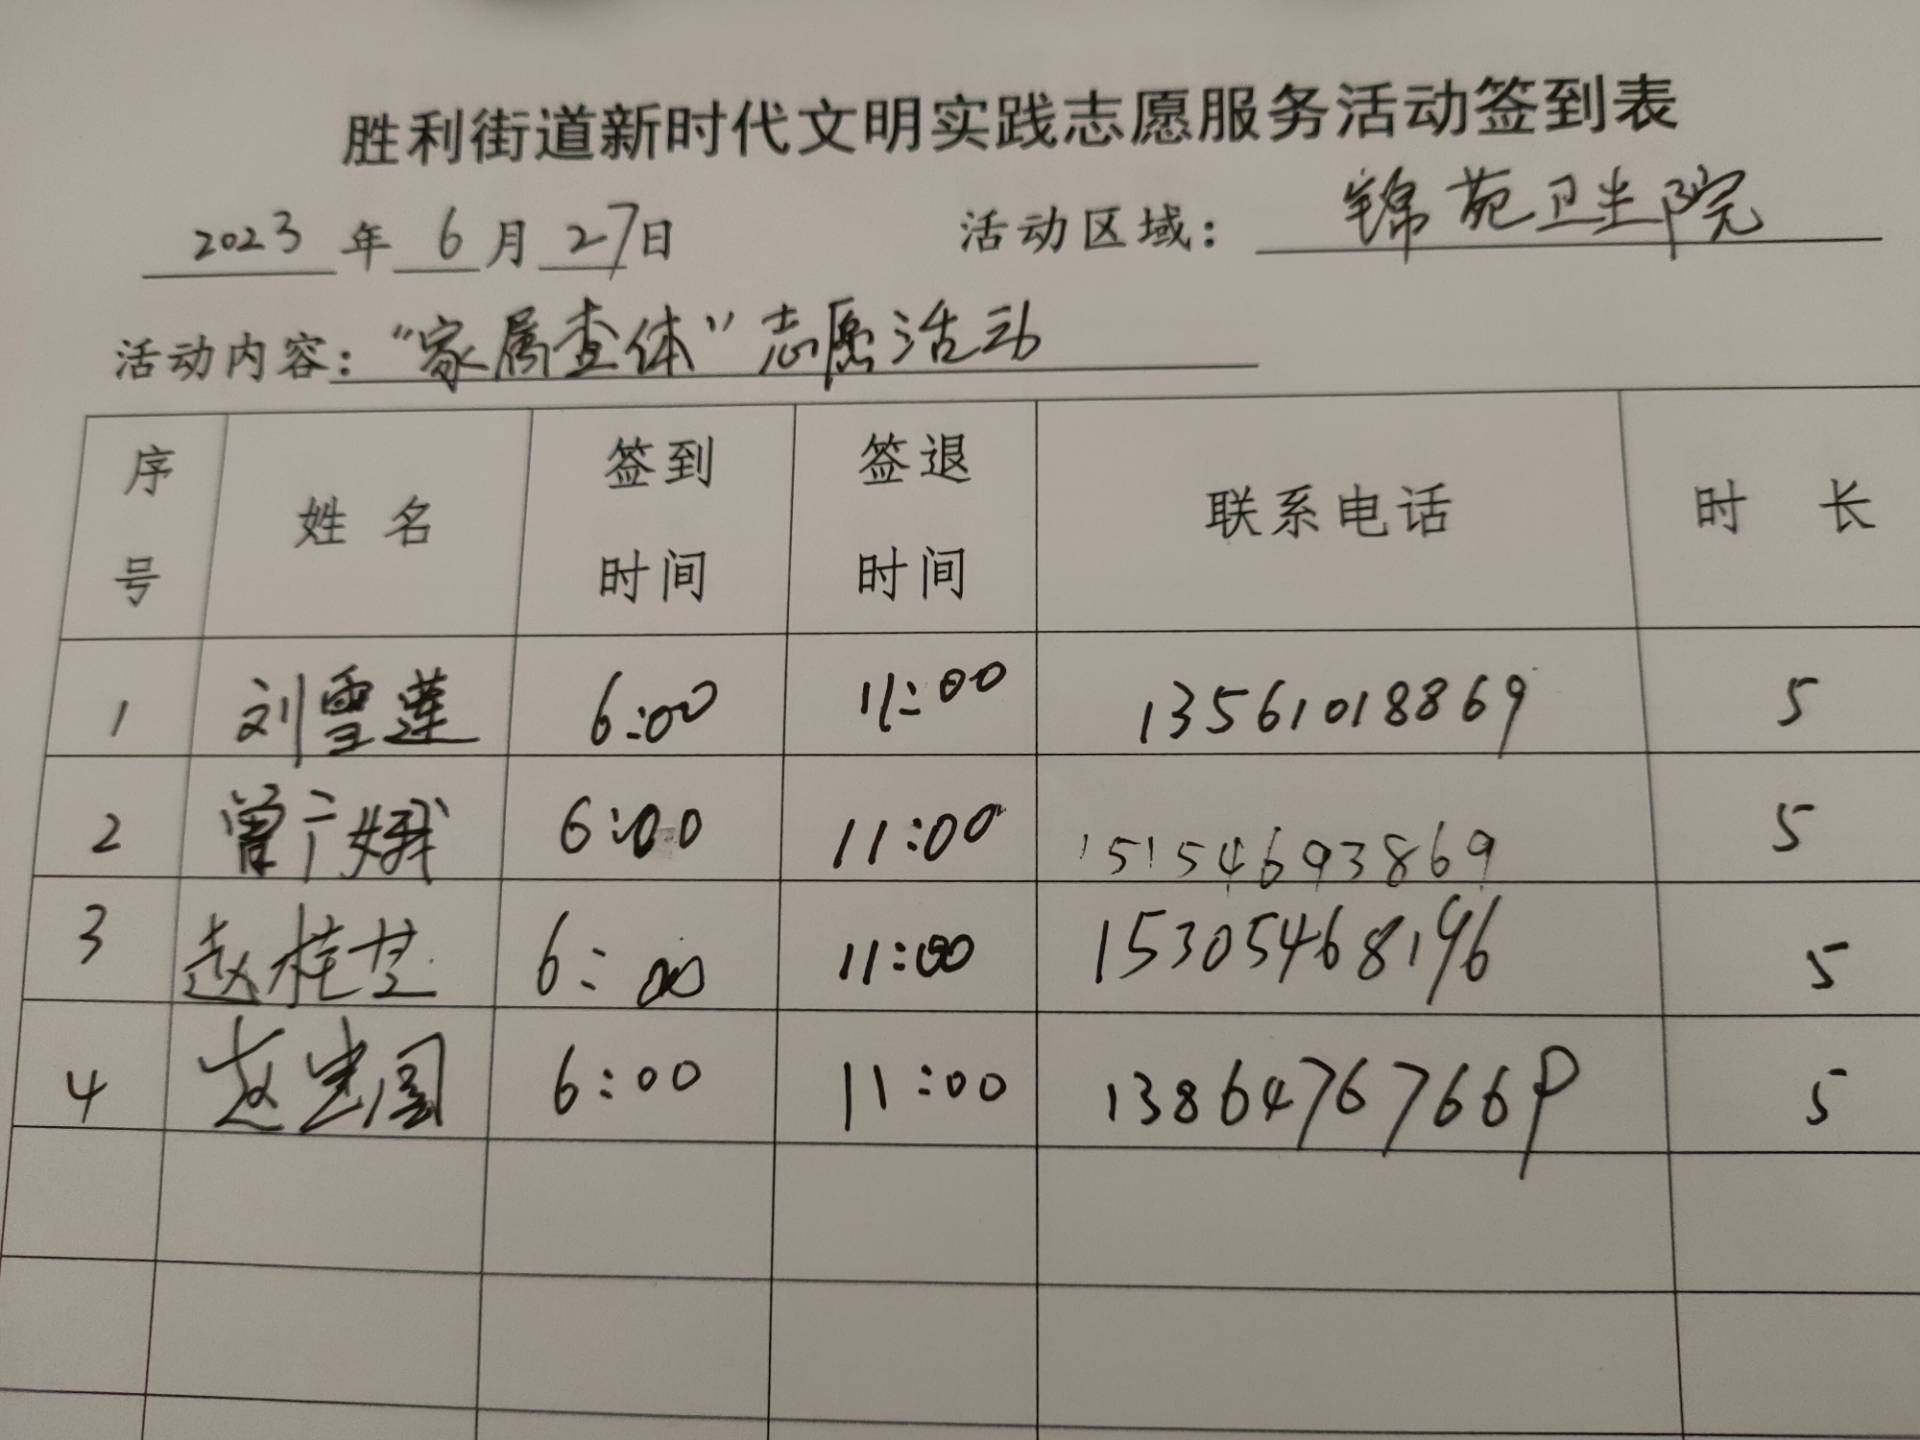 胜利街道新时代文明实践志愿服务活动签到表
2023 年 6 月 27 日 活动区域： 锦苑卫生院
活动内容： “家属查体”志愿活动
序号 姓名 签到时间 签退时间 联系电话 时长
1 刘雪莲 6:00 11:00 13561018869 5
2 曾广娥 6:00 11:00 15154693869 5
3 赵桂芝 6:00 11:00 15305468196 5
4 赵 6:00 11:00 1386476766 5